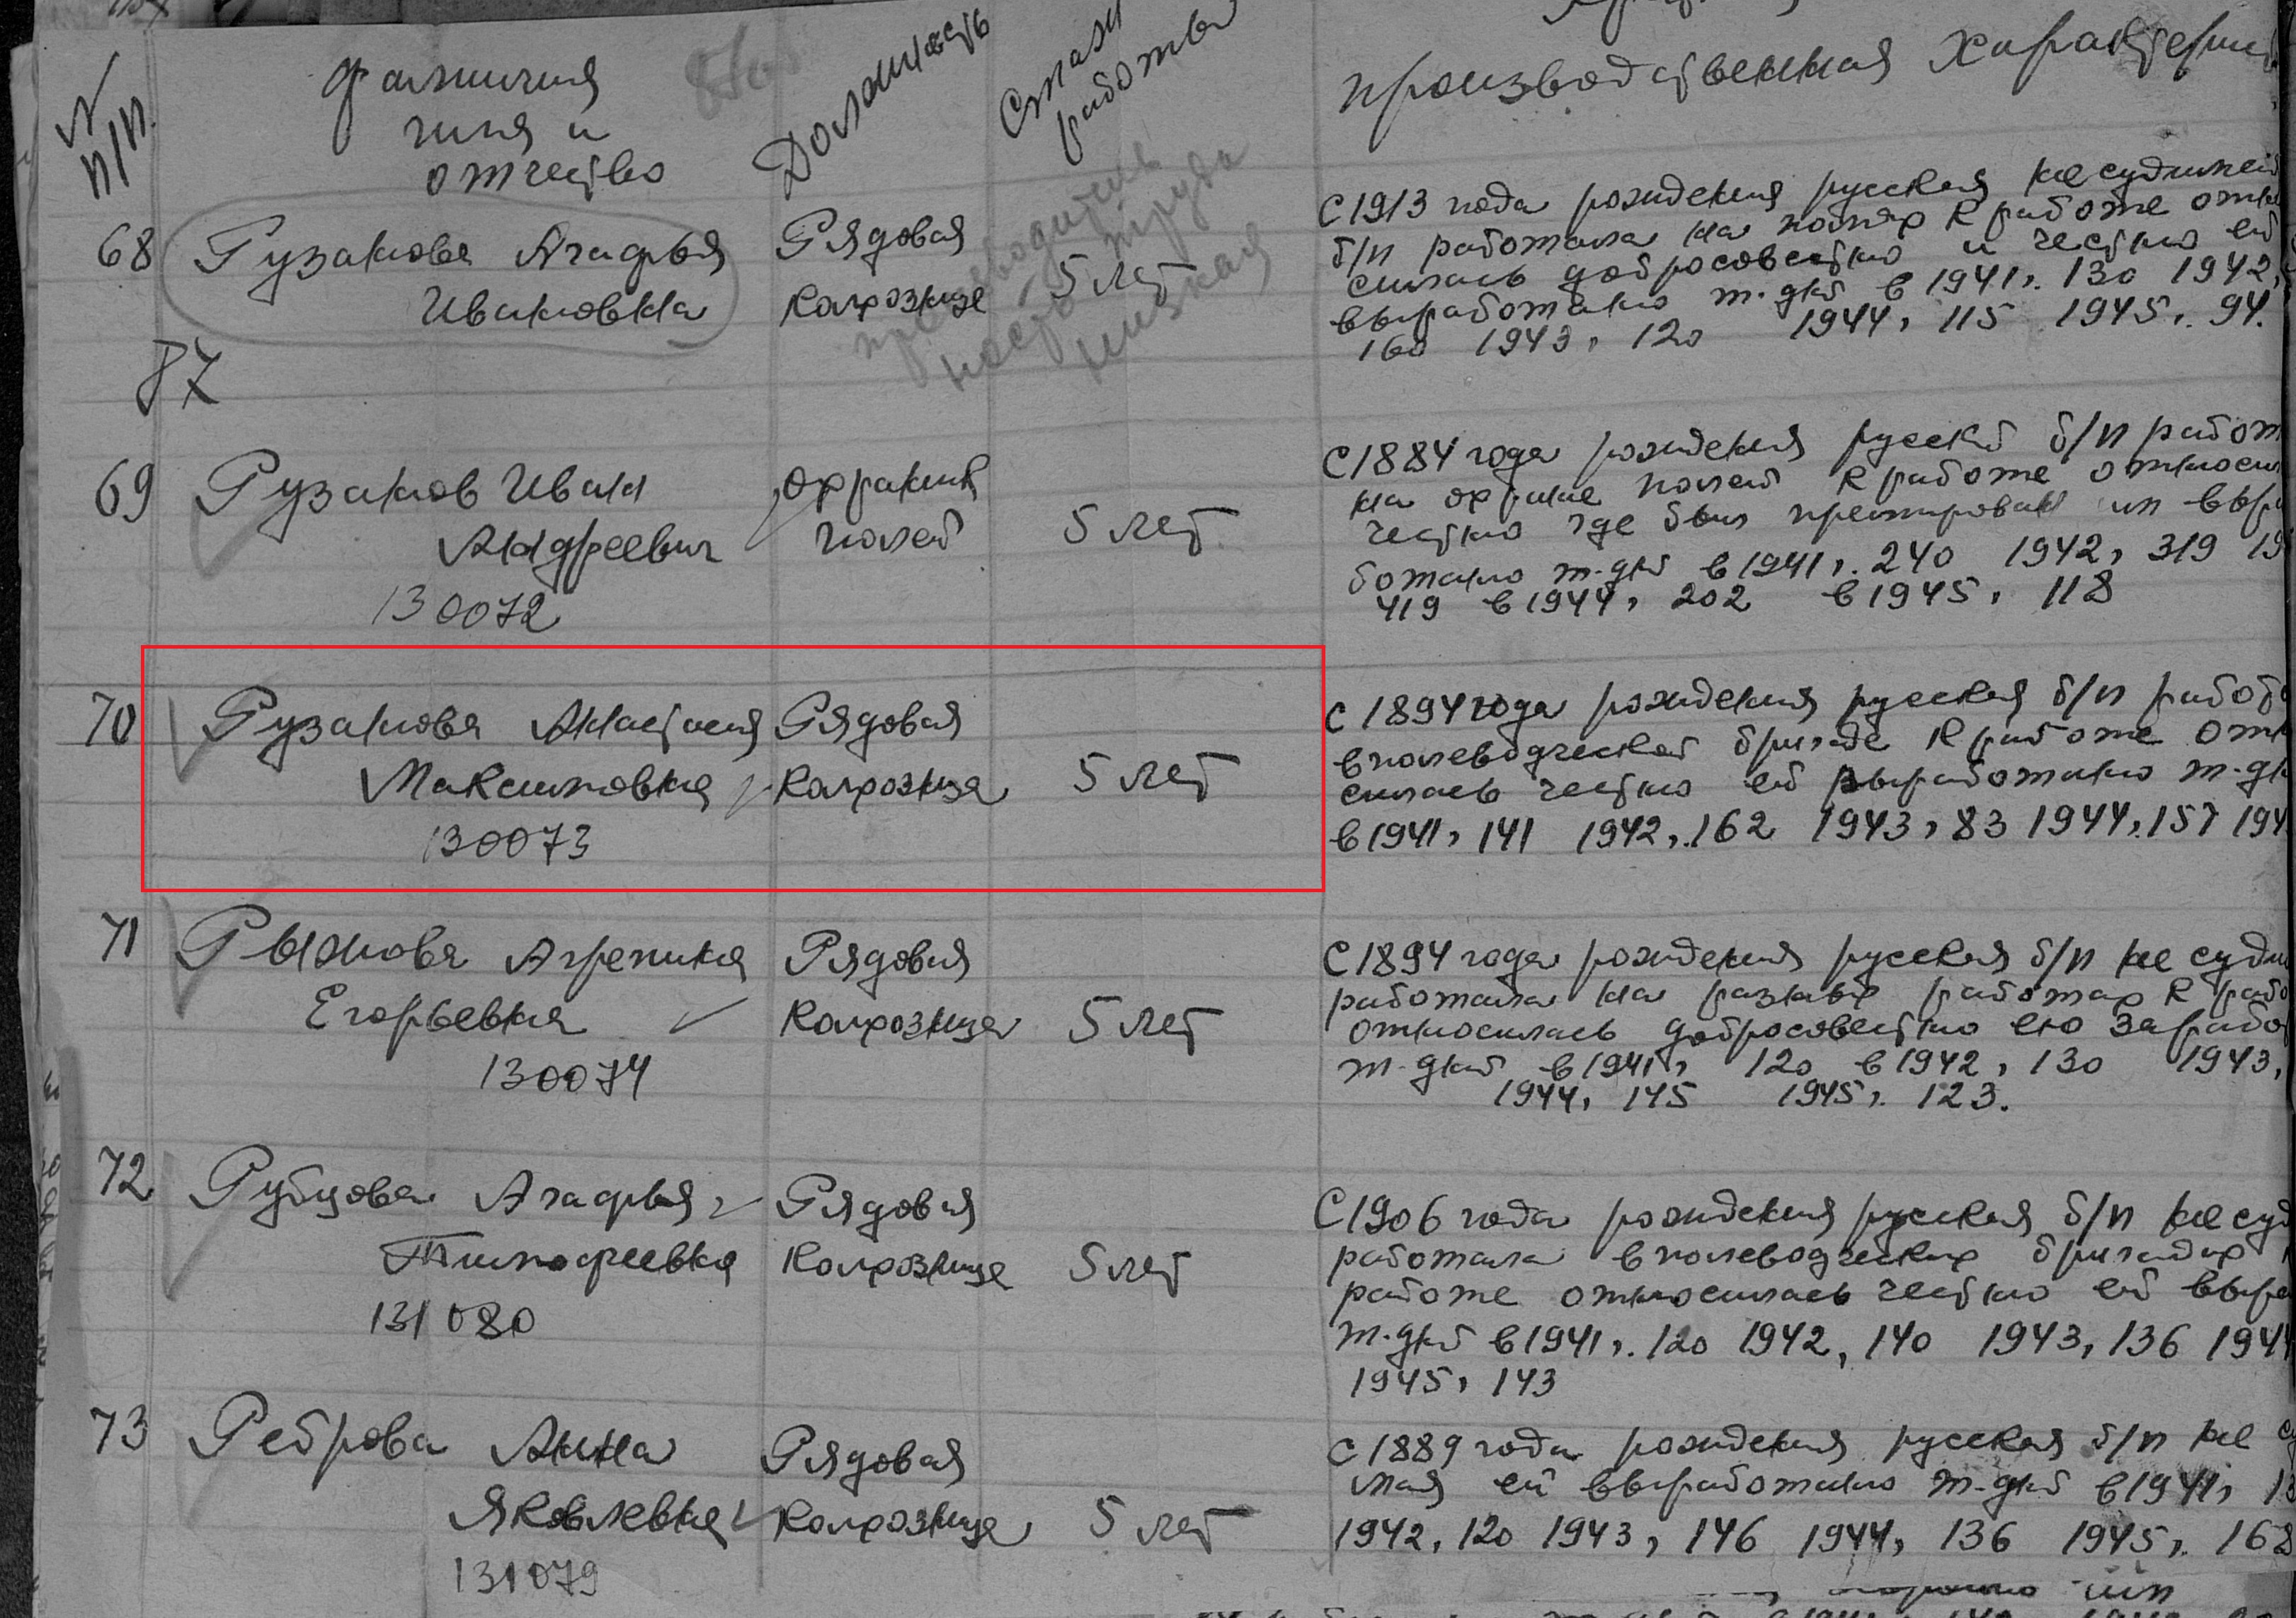 N
п/п.
Фамилия
имя и
отчество
Должность
Стаж
работы
производственная Характерис
68
Рузанова Агафья
Ивановна
Рядовая
колхозница
5 лет
производитель
ность труда
низкая
С 1913 года рождения русская не судимая
б/п работала на полях К работе отно
силась добросовестно и честно ей
выработано т.дней в 1941г. 130 1942,
160 1943, 120 1944, 115 1945г. 94.
87
69
Рузанов Иван
Андреевич
130072
охраник
полей
5 лет
С 1884 года рождения русский б/п работ
на охране полей К работе относил
честно где был премирован им выра
ботано т.дней в 1941г. 240 1942, 319 19
419 в 1944, 202 в 1945, 118
70
Рузанова Анастасия
Максимовна
130073
Рядовая
колхозница
5 лет
С 1894 года рождения русская б/п работа
в полеводческой бригаде К работе отн
силась честно ей выработано т.дн
в 1941, 141 1942г. 162 1943, 83 1944г. 157 194
71
Рыжова Агрепина
Егорьевна
130074
Рядовая
колхозница
5 лет
С 1894 года рождения русская б/п не суди
работала на разных работах К рабо
относилась добросовестно ею зарабо
т.дней в 1941, 120 в 1942, 130 1943,
1944, 145 1945г. 123.
72
Рубцова Агафья
Тимофеевна
131080
Рядовая
колхозница
5 лет
С 1906 года рождения русская б/п не суд
работала в полеводческих бригадах
работе относилась честно ей выра
т.дней в 1941г. 120 1942, 140 1943, 136 194
1945, 143
73
Реброва Анна
Яковлевна
131079
Рядовая
колхозница
5 лет
С 1889 года рождения русская б/п не с
мая ей выработано т.дней в 1941,
1942, 120 1943, 146 1944, 136 1945г. 162